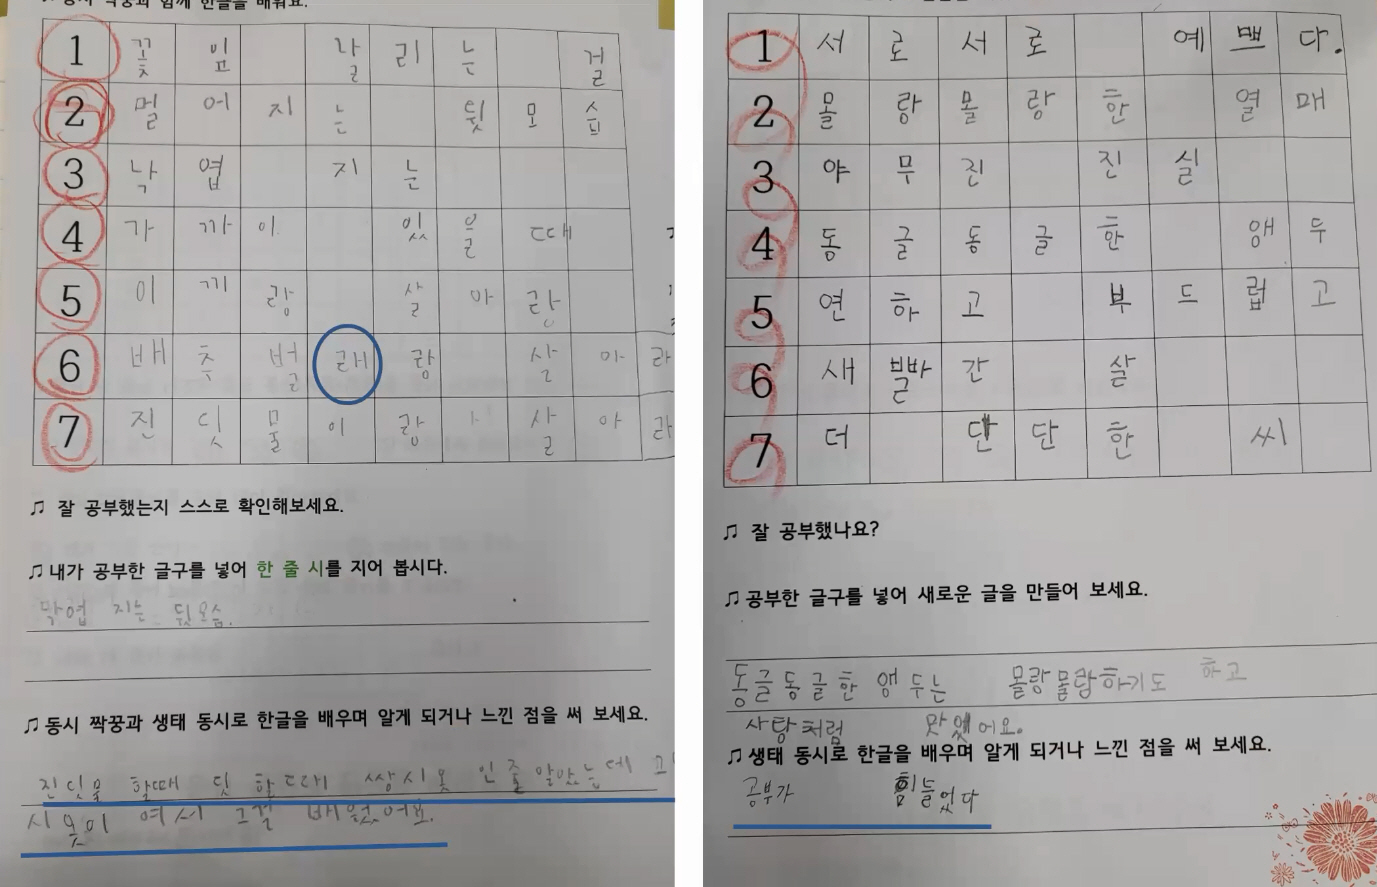 동시 짝꿍과 함께 한글을 배워요.
1 꽃 잎 날 리 는 길
2 멀 어 지 는 뒷 모 습
3 낙 엽 지 는
4 가 까 이 있 을 때
5 이 끼 랑 살 아 랑
6 배 추 벌 래 랑 살 아 라
7 진 딧 물 이 랑 살 아 라
♫ 잘 공부했는지 스스로 확인해보세요.
♫ 내가 공부한 글구를 넣어 한 줄 시를 지어 봅시다.
낙엽 지는 뒷모습.
♫ 동시 짝꿍과 생태 동시로 한글을 배우며 알게 되거나 느낀 점을 써 보세요.
진딧물 할때 딧 할때 쌍시옷 인줄 알았는데
시옷이 여서 그걸 배웠어요.
1 서 로 서 로 예 쁘 다.
2 몰 랑 몰 랑 한 열 매
3 야 무 진 진 실
4 동 글 동 글 한 앵 두
5 연 하 고 부 드 럽 고
6 새 빨 간 살
7 더 단 단 한 씨
♫ 잘 공부했나요?
♫ 공부한 글구를 넣어 새로운 글을 만들어 보세요.
동글동글한 앵두는 몰랑몰랑하기도 하고
사탕처럼 맛있어요.
♫ 생태 동시로 한글을 배우며 알게 되거나 느낀 점을 써 보세요.
공부가 힘들었다